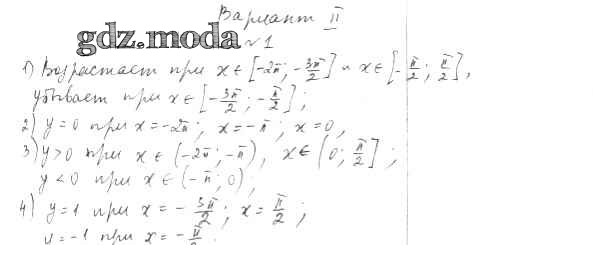 Вариант II
gdz.moda
№1
1) Возрастает при x ∈ [-2π; -3π/2] и x ∈ [-π/2; π/2],
убывает при x ∈ [-3π/2; -π/2];
2) y = 0 при x = -2π; x = -π; x = 0,
3) y > 0 при x ∈ (-2π; -π), x ∈ (0; π/2];
y < 0 при x ∈ (-π; 0);
4) y = 1 при x = -3π/2; x = π/2;
y = -1 при x = -π/2.